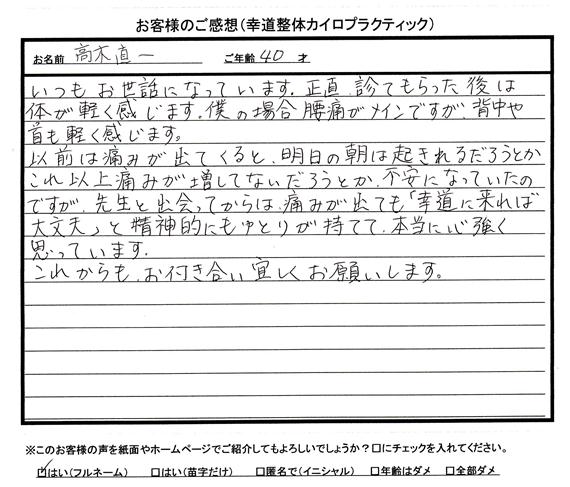 お客様のご感想(幸道整体カイロプラクティック)
お名前 高木直一 ご年齢 40 才
いつもお世話になっています。正直、診てもらった後は
体が軽く感じます。僕の場合腰痛がメインですが、背中や
首も軽く感じます。
以前は痛みが出てくると、明日の朝は起きれるだろうとか
これ以上痛みが増してないだろうとか、不安になっていたの
ですが、先生と出会ってからは、痛みが出ても「幸道に来れば
大丈夫」と精神的にもゆとりが持てて、本当に心強く
思っています。
これからも、お付き合い宜しくお願いします。
※このお客様の声を紙面やホームページでご紹介してもよろしいでしょうか？□にチェックを入れてください。
☑はい(フルネーム) □はい(苗字だけ) □匿名で(イニシャル) □年齢はダメ □全部ダメ